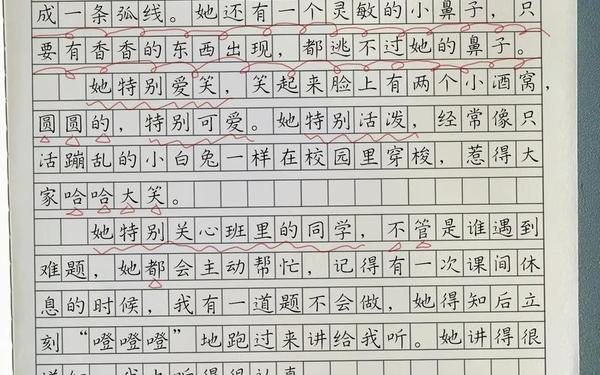 成一条弧线。她还有一个灵敏的小鼻子，只
要有香香的东西出现，都逃不过她的鼻子。
她特别爱笑，笑起来脸上有两个小酒窝，
圆圆的，特别可爱。她特别活泼，经常像只
活蹦乱的小白兔一样在校园里穿梭，惹得大
家哈哈大笑。
她特别关心班里的同学，不管是谁遇到
难题，她都会主动帮忙，记得有一次课间休
息的时候，我有一道题不会做，她得知后立
刻“噔噔噔”地跑过来讲给我听。她讲得很